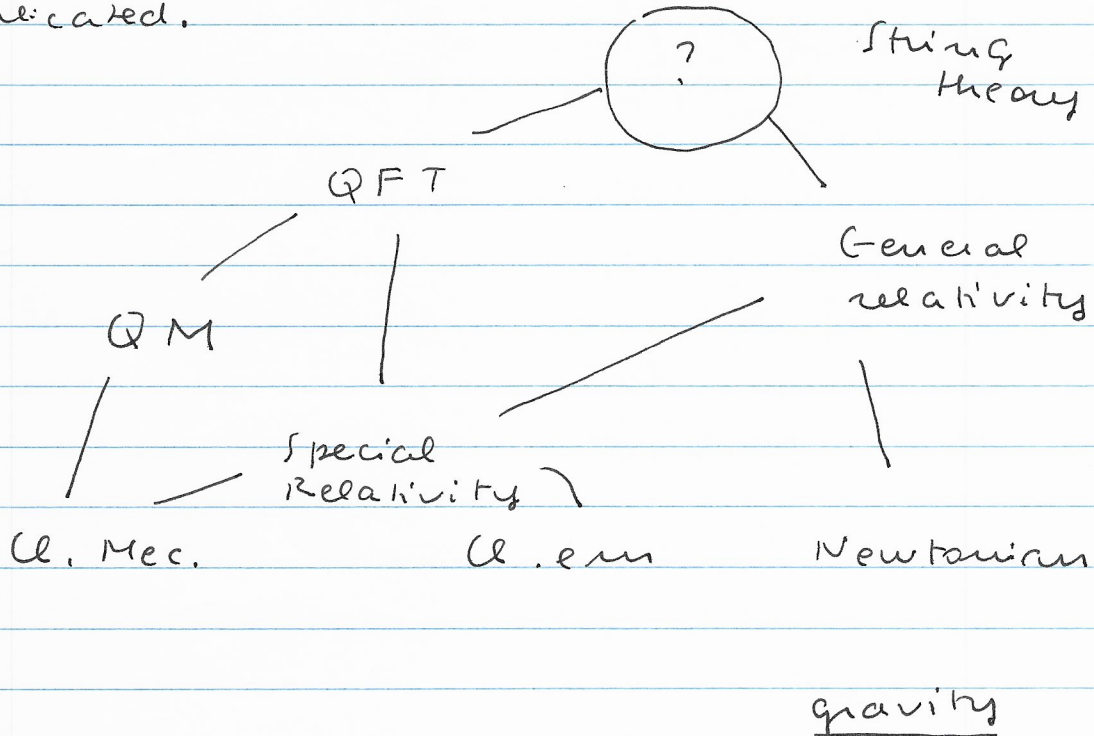 licated.
?
String
theory
QFT
General
relativity
QM
Special
Relativity
Cl. Mec.
Cl. em
Newtonian
gravity